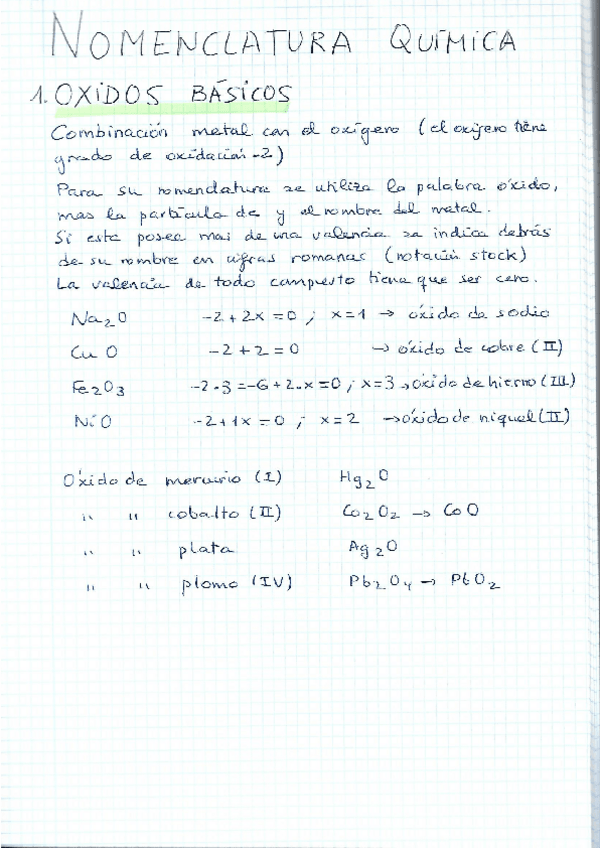 NOMENCLATURA QUÍMICA
1. OXIDOS BÁSICOS
Combinación metal con el oxígeno (el oxígeno tiene
grado de oxidación -2)
Para su nomenclatura se utiliza la palabra óxido,
mas la partícula de y el nombre del metal.
Si este posee mas de una valencia se indica detrás
de su nombre en cifras romanas (notación stock)
La valencia de todo compuesto tiene que ser cero.
Na₂O -2 + 2x = 0 ; x=1 → óxido de sodio
CuO -2 + 2 = 0 → óxido de cobre (II)
Fe₂O₃ -2·3=-6+2·x=0 ; x=3 → oxido de hierro (III)
NiO -2+1x=0 ; x=2 → óxido de niquel (II)
Oxido de mercurio (I) Hg₂O
" " cobalto (II) Co₂O₂ → CoO
" " plata Ag₂O
" " plomo (IV) Pb₂O₄ → PbO₂